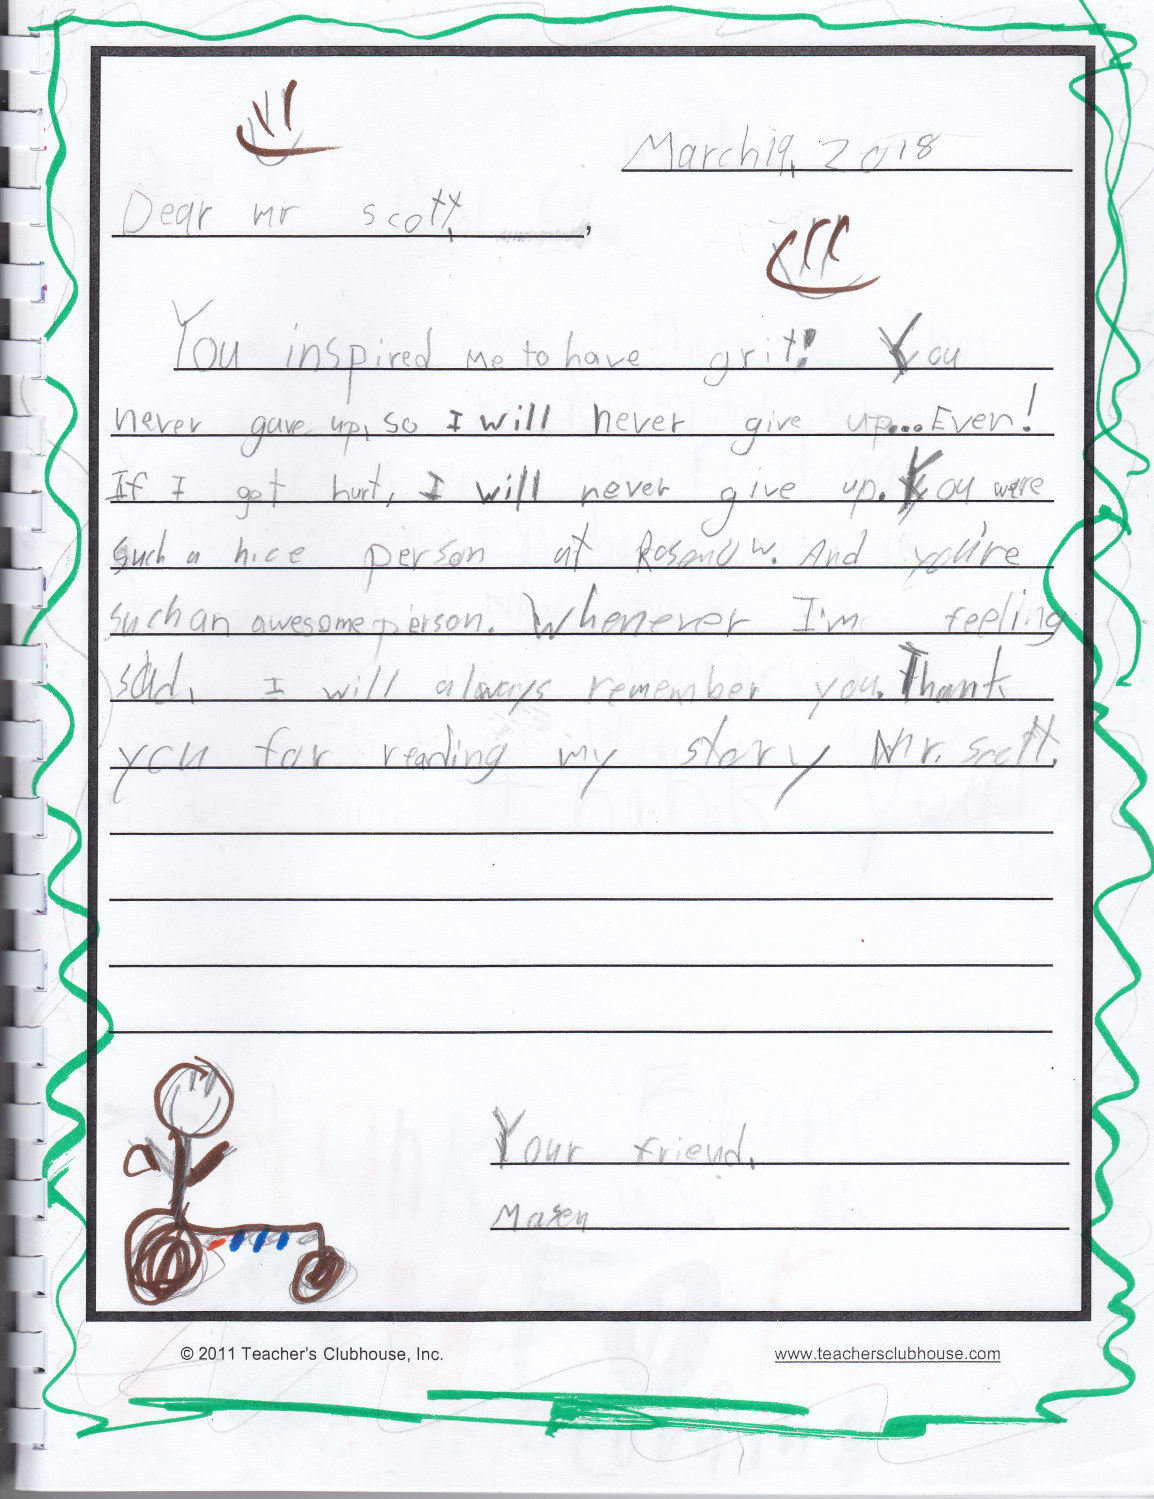 March 19, 2018
Dear mr scott,
You inspired me to have grit! You
never gave up, so I will never give up...Even!
If I get hurt, I will never give up. You were
such a nice person at w. And you're
such an awesome person. Whenever I'm feeling
sad, I will always remember you. Thank
you for reading my story Mr. Scott.
Your friend,
Masen
© 2011 Teacher's Clubhouse, Inc.
www.teachersclubhouse.com